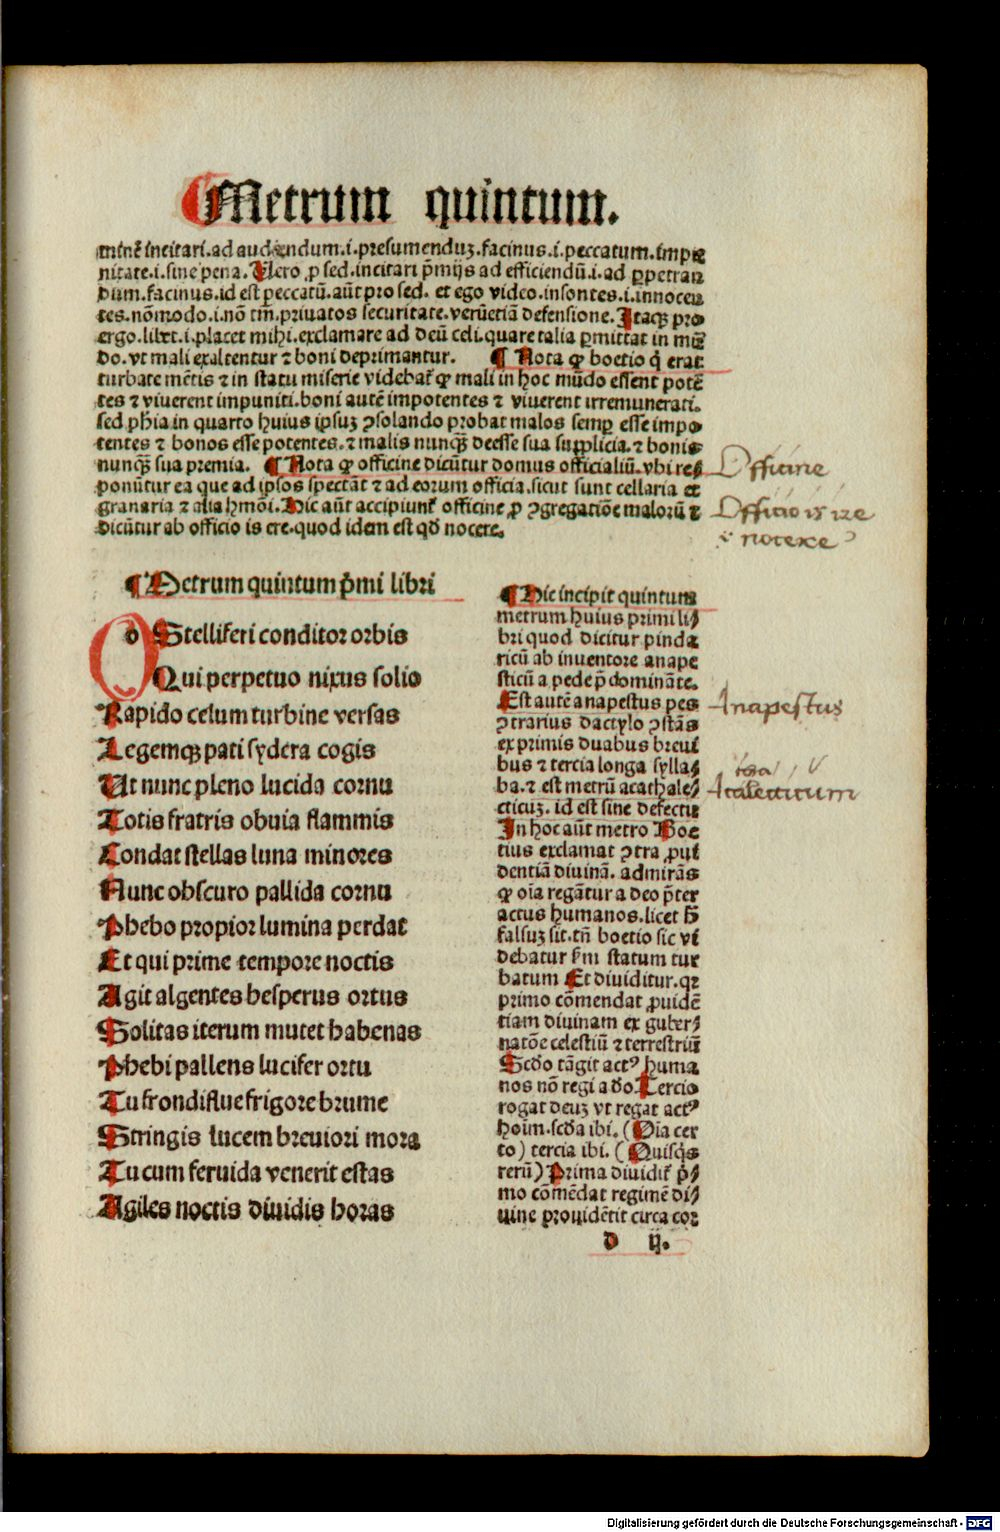 Metrum quintum.
minẽ incitari. ad audendum .i. presumenduꝫ. facinus .i. peccatum. impu
nitate .i. sine pena. Vero ꝓ sed. incitari p̃mijs ad efficiendũ .i. ad ꝑpetran
dum. facinus. id est peccatũ. aũt pro sed. et ego video. insontes .i. innocen
tes. nõmodo .i. nõ tm̃. priuatos securitate. verũetiã defensione. Itaqꝫ pro
ergo. libet .i. placet mihi. exclamare ad deũ celi. quare talia ꝑmittat in mũ
do. vt mali exaltentur ⁊ boni deprimantur. ¶ Nota ꝙ boetio q̃ erat
turbate mẽtis ⁊ in statu miserie videbat̃ ꝙ mali in hoc mũdo essent potẽ
tes ⁊ viuerent impuniti. boni autẽ impotentes ⁊ viuerent irremunerati.
sed phia in quarto huius ipsuꝫ ꝯsolando probat malos semꝑ esse impo
tentes ⁊ bonos esse potentes. ⁊ malis nunqꝫ̃ deesse sua supplicia. ⁊ bonis
nunqꝫ̃ sua premia. ¶ Nota ꝙ officine dicũtur domus officialiũ. vbi res
ponũtur ea que ad ipsos spectãt ⁊ ad eorum officia. sicut sunt cellaria et
granaria ⁊ alia hmõi. Hic aũt accipiunt̃ officine ꝓ ꝯgregatiõe malorũ ⁊
dicũtur ab officio is ere. quod idem est qđ nocere.
Officine
Officio is ire
i notere
¶ Metrum quintum p̃mi libri
o Stelliferi conditor orbis
Qui perpetuo nixus solio
Rapido celum turbine versas
Legemqꝫ pati sydera cogis
Ut nunc pleno lucida cornu
Totis fratris obuia flammis
Condat stellas luna minores
Nunc obscuro pallida cornu
Phebo propior lumina perdat
Et qui prime tempore noctis
Agit algentes hesperus ortus
Solitas iterum mutet habenas
Phebi pallens lucifer ortu
Tu frondiflue frigore brume
Stringis lucem breuiori mora
Tu cum feruida venerit estas
Agiles noctis diuidis horas
¶ Hic incipit quintum
metrum huius primi li⸗
bri quod dicitur pinda
ricũ ab inuentore anape
sticũ a pede p̃dominãte.
Est autẽ anapestus pes
ꝯtrarius dactylo ꝯstãs
ex primis duabus breui
bus ⁊ tercia longa sylla⸗
ba. ⁊ est metrũ acathale⸗
cticuꝫ. id est sine defectu
In hoc aũt metro Boe
tius exclamat ꝯtra ꝓui
dentiã diuinã. admirãs
ꝙ oĩa regãtur a deo p̃ter
actus humanos. licet h̃
falsuꝫ sit. tñ boetio sic vi
debatur fm̃ statum tur
batum Et diuiditur. qꝛ
primo cõmendat ꝓuidẽ
tiam diuinam ex guber⸗
natõe celestiũ ⁊ terrestriũ
Scđo tãgit actꝰ huma
nos nõ regi a đo. Tercio
rogat deuꝫ vt regat actꝰ
hoĩm. scđa ibi. (Oĩa cer
to) tercia ibi. (Quisq̃s
rerũ) Prima diuidit̃ p̃⸗
mo cõmẽdat regimẽ di⸗
uine prouidẽtie circa cor
Anapestus
Acalecticum
d ij.
Digitalisierung gefördert durch die Deutsche Forschungsgemeinschaft - DFG